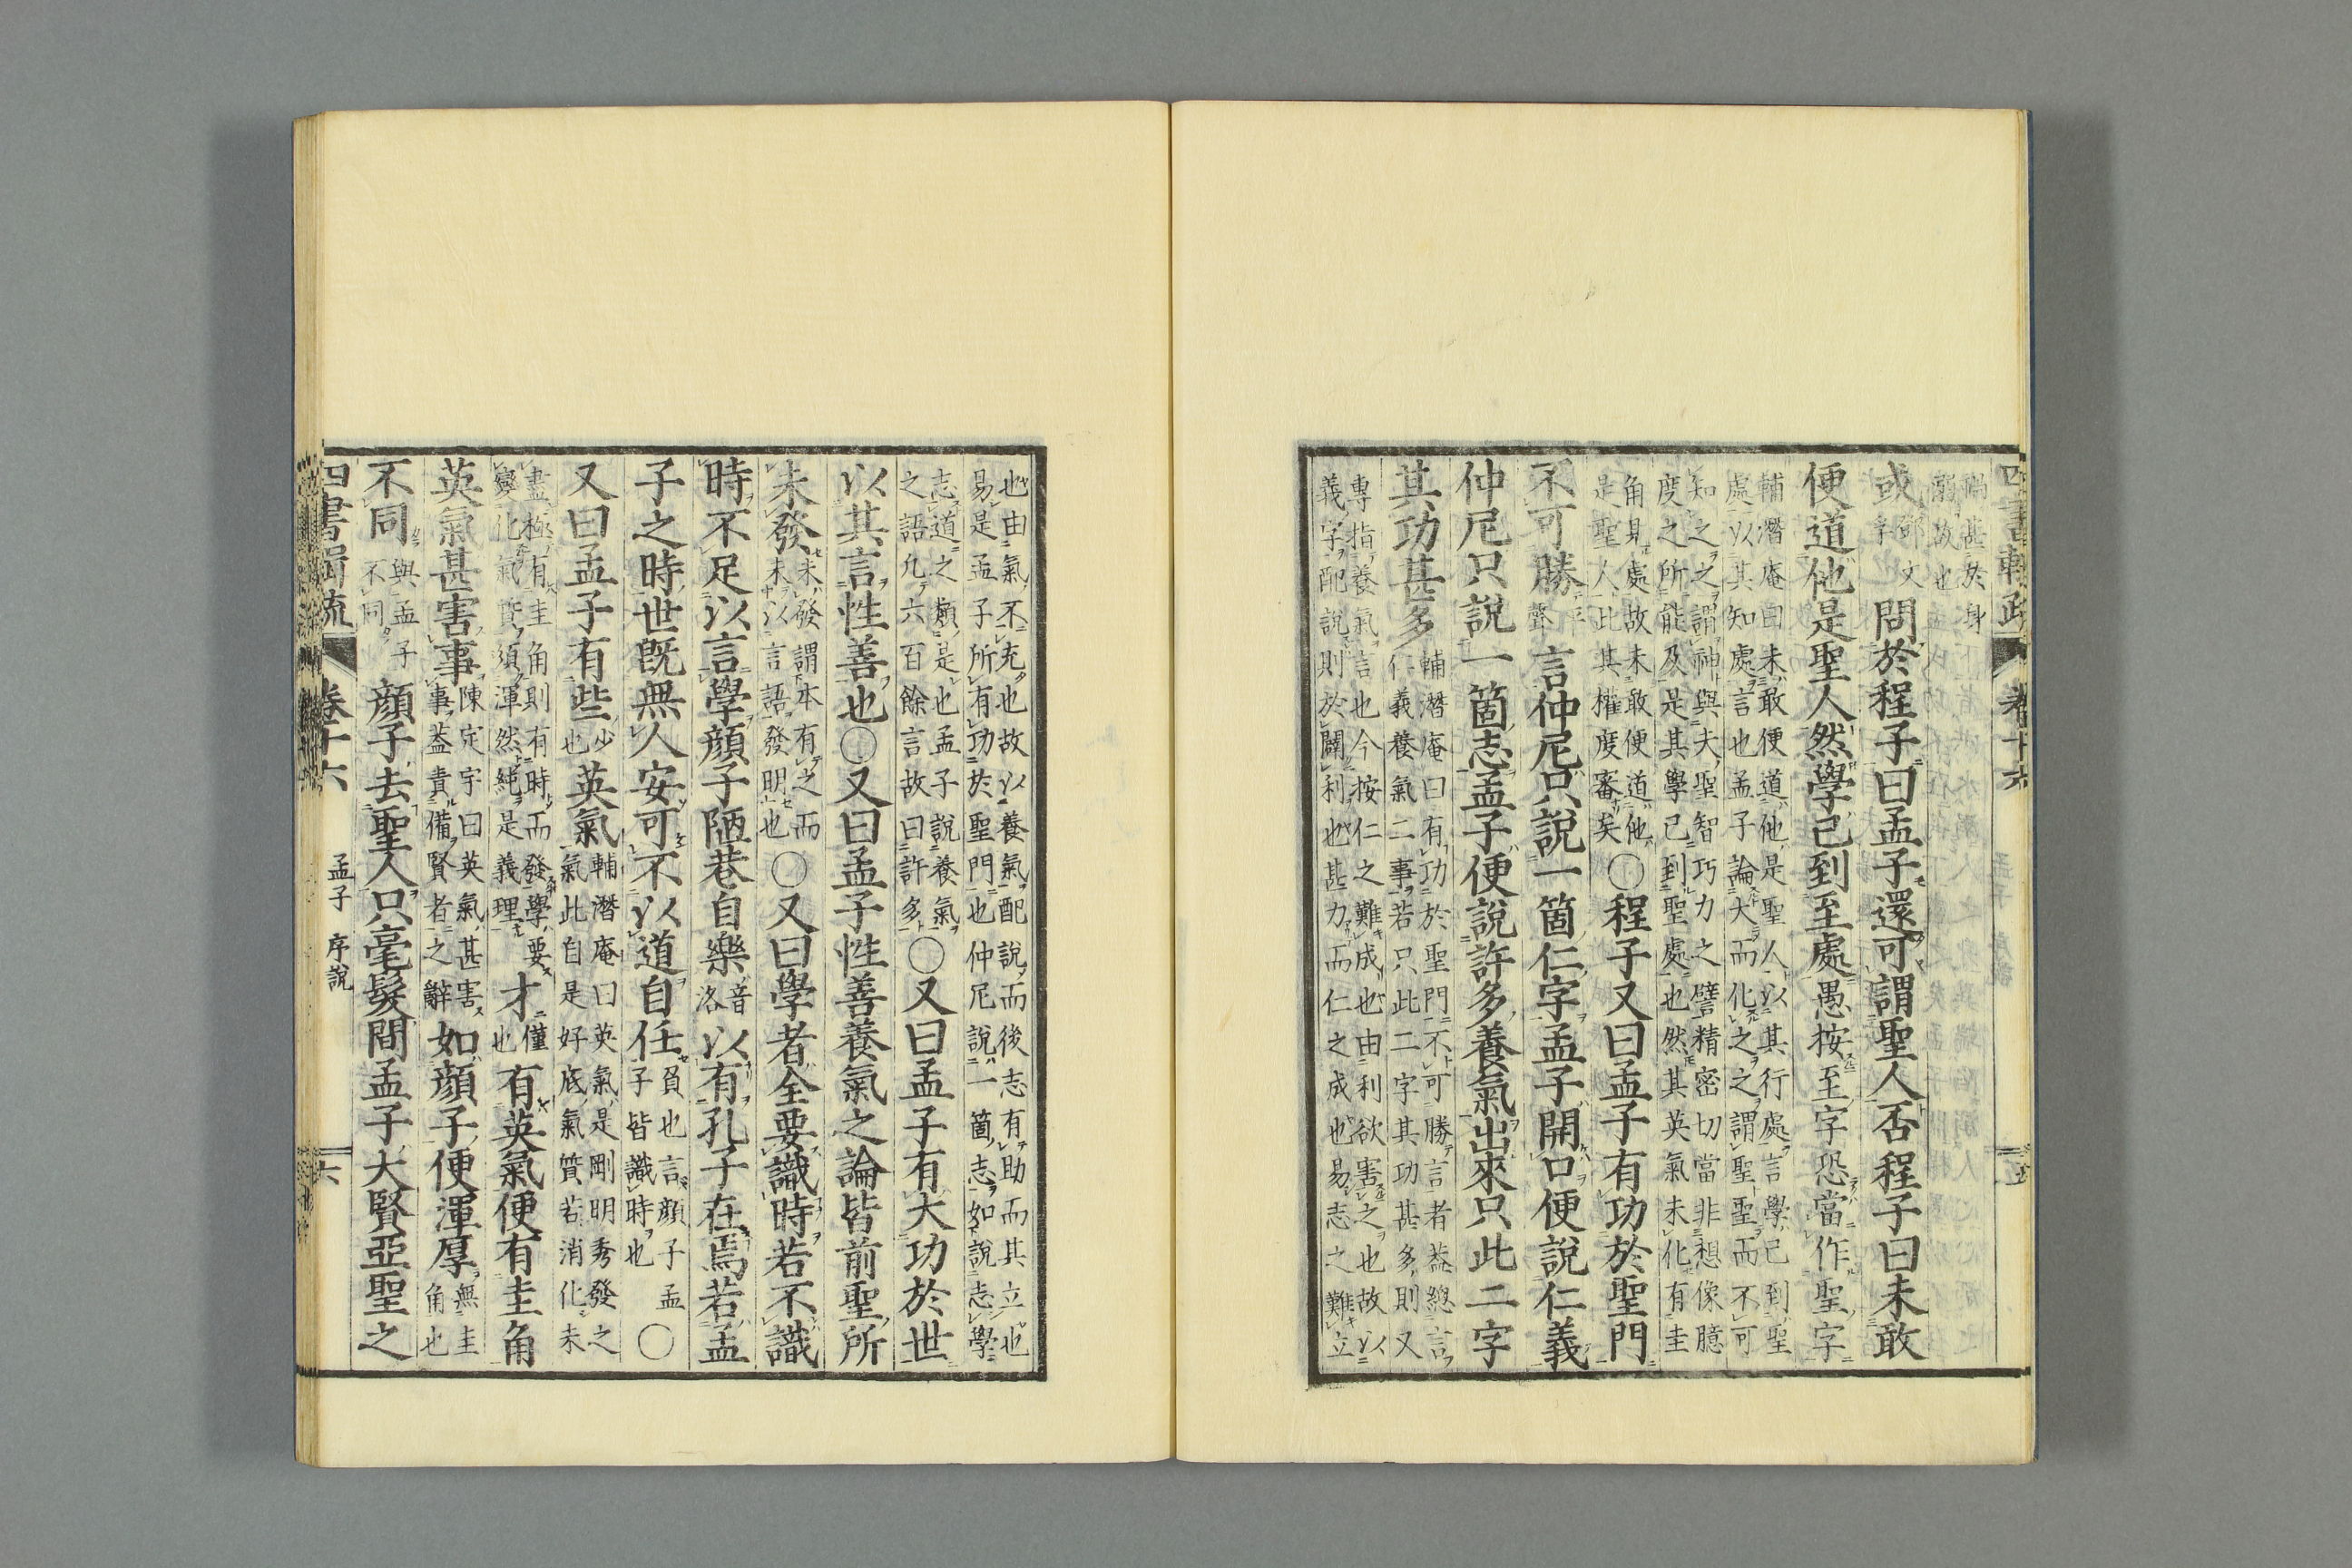 四書輯疏 卷十六
禍甚於身
溺故也
或鄧文字也問於程子曰孟子還可謂聖人否程子曰未敢
便道他是聖人然學已到至處愚按至字恐當作聖字
輔潛庵曰未敢便道他是聖人以其行處言學已到聖
處以其知處言也孟子論大而化之之謂聖聖而不可
知之之謂神與夫聖智巧力之譬精密切當非想像臆
度之所能及是其學已到聖處也然其英氣未化有圭
角見處故未敢便道他
是聖人此其權度審矣〇程子又曰孟子有功於聖門
不可勝平聲言仲尼只說一箇仁字孟子開口便說仁義
仲尼只說一箇志孟子便說許多養氣出來只此二字
其功甚多輔潛庵曰有功於聖門不可勝言者葢總言
仁義養氣二事若只此二字其功甚多則又
專指養氣言也今按仁之難成也由利欲害之也故以
義字配說則於闢利也甚力而仁之成也易志之難立
也由氣不充也故以養氣配說而後志有助而其立也
易是孟子所有功於聖門也仲尼說一箇志如說志學
志道之類是也孟子說養氣
之語凡六百餘言故曰許多〇又曰孟子有大功於世
以其言性善也〇又曰孟子性善養氣之論皆前聖所
未發未發謂本有之而
未以言語發明也〇又曰學者全要識時若不識
時不足以言學顏子陋巷自樂音洛以有孔子在焉若孟
子之時世旣無人安可不以道自任負也言顏子孟
子皆識時也〇
又曰孟子有些少也英氣輔潛庵曰英氣是剛明秀發之
氣此自是好底氣質若消化未
盡極有圭角則有時而發學要
變化氣質須渾然純是義理才僅也有英氣便有圭角
英氣甚害事陳定宇曰英氣甚害
事葢責備賢者之辭如顏子便渾厚無圭
角也
不同與孟子
不同顏子去聖人只毫髮間孟子大賢亞聖之
四書輯疏 卷十六 孟子 序說 六